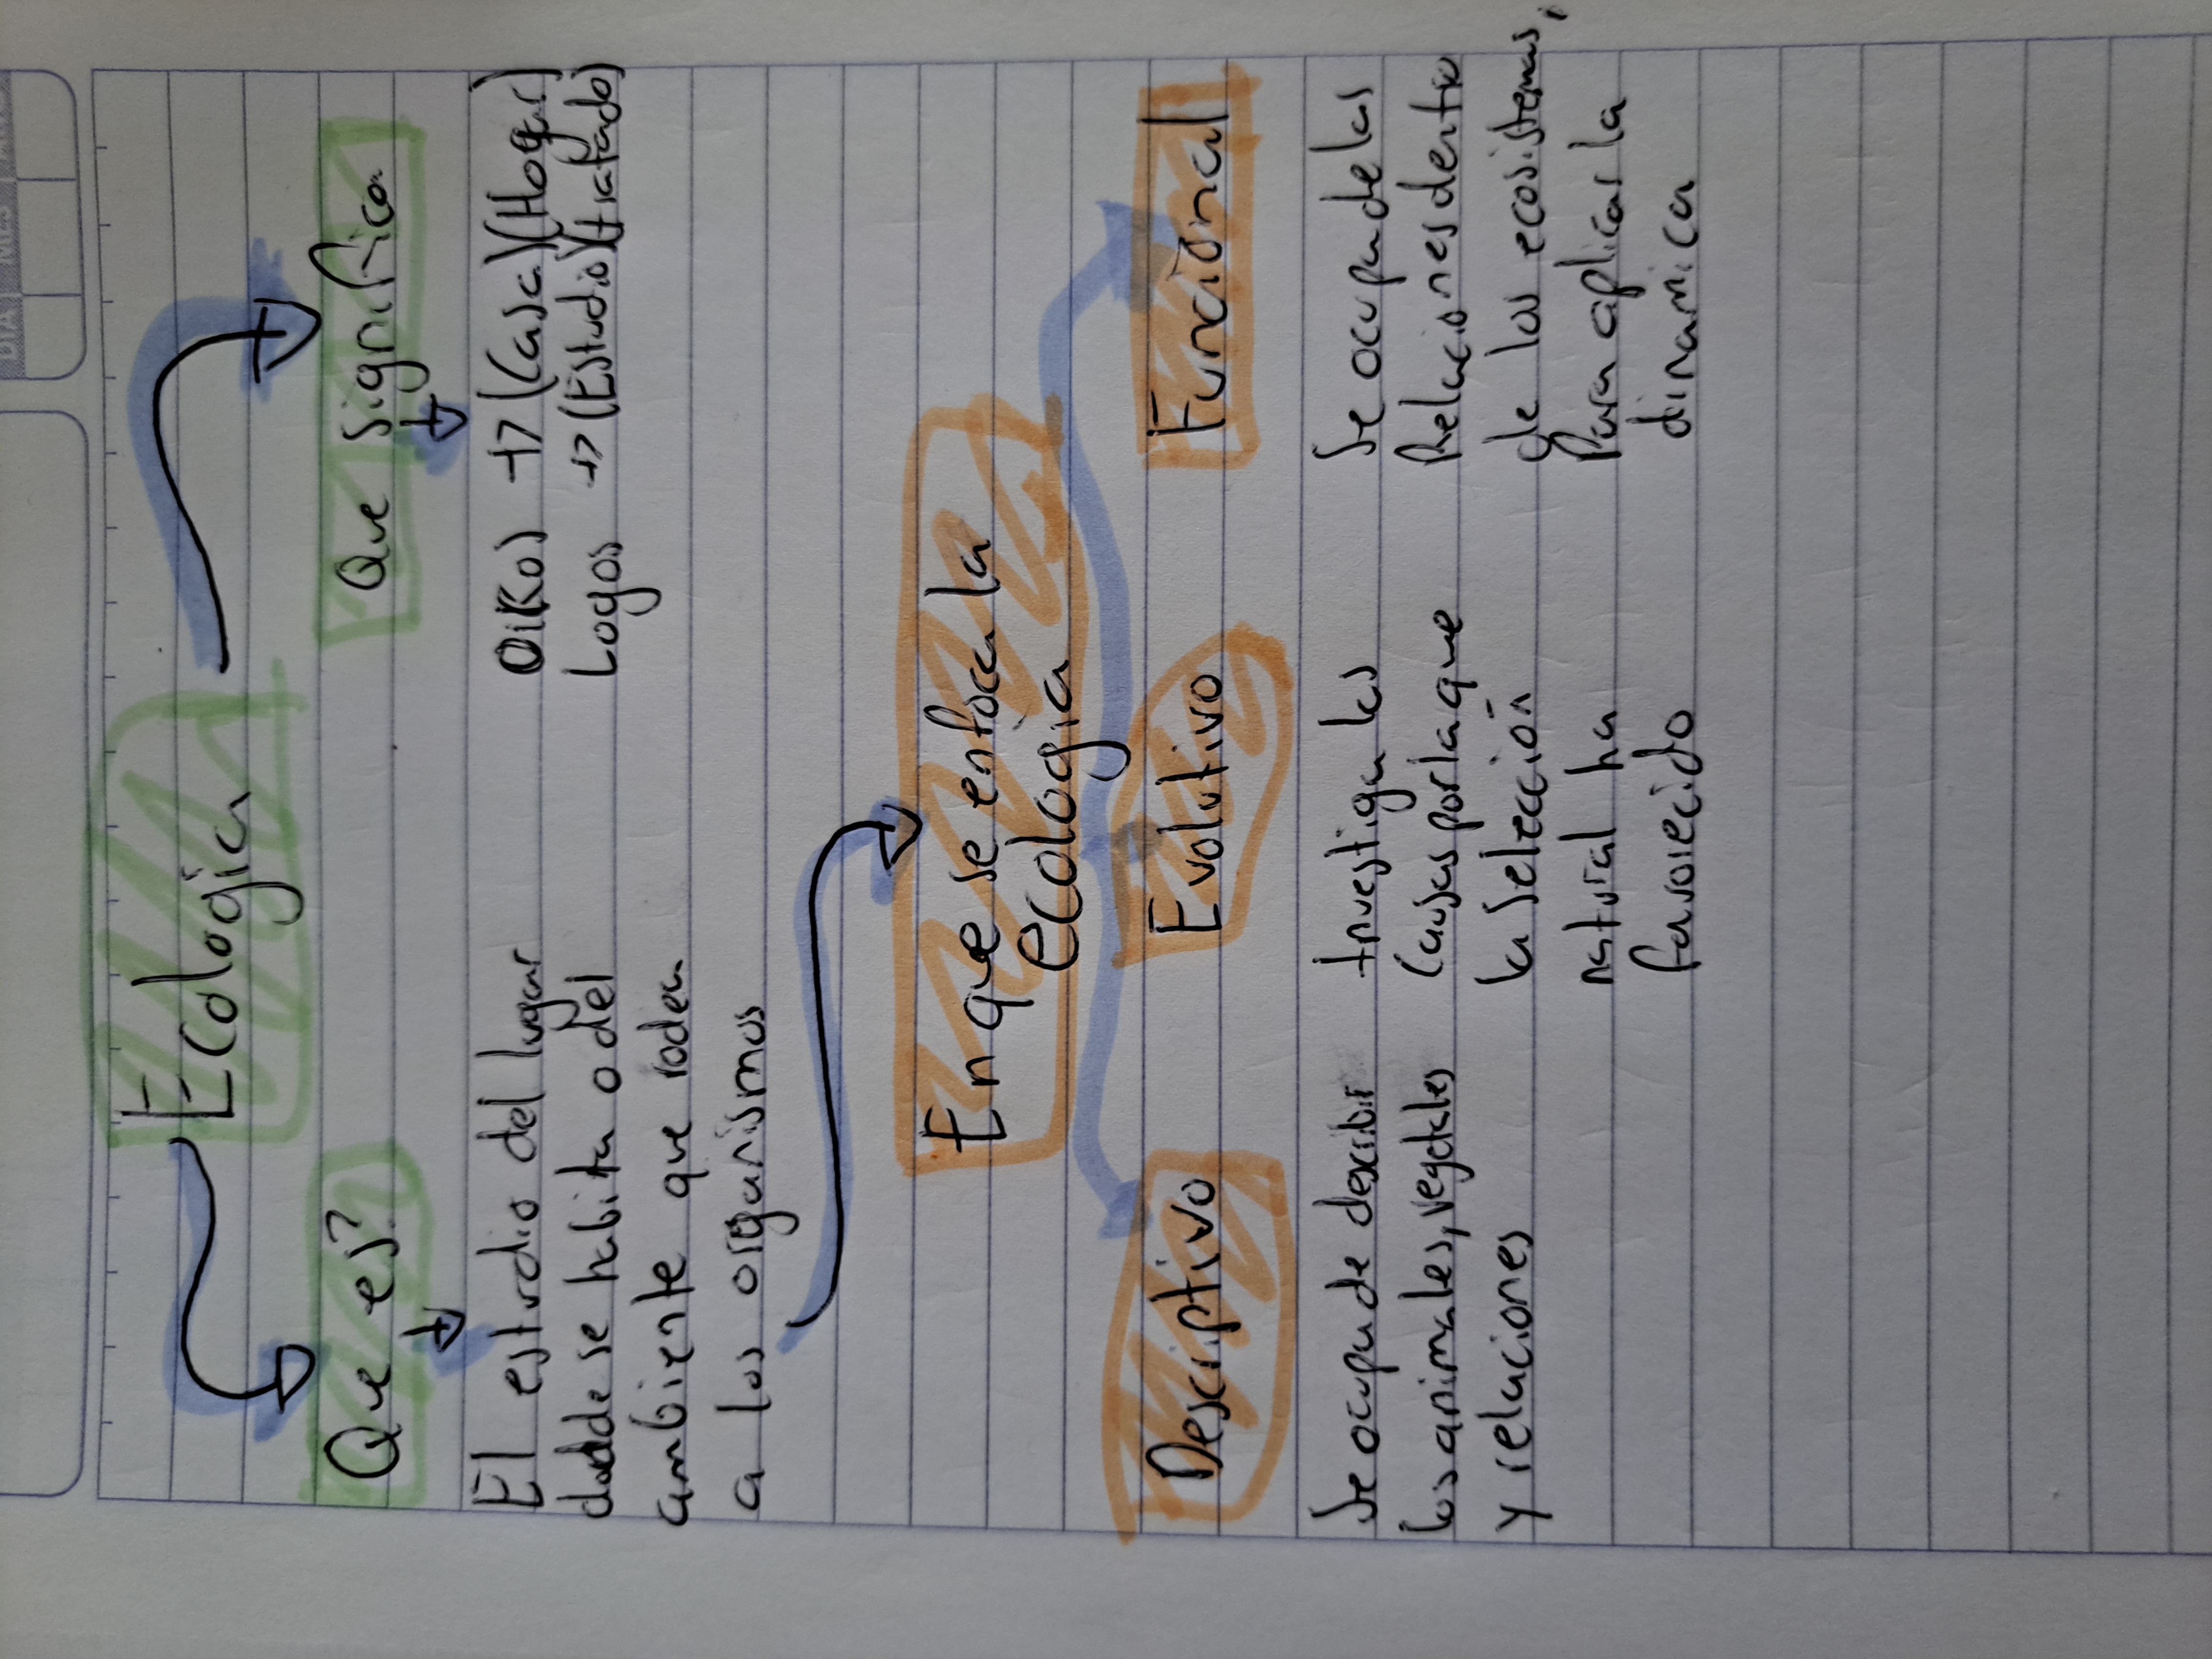 DIA MES
Ecologia
Que es?
Que significa
El estudio del lugar
donde se habita o del
ambiente que rodea
a los organismos
Oikos → (Casa)(Hogar)
Logos → (Estudio)(tratado)
En que se enfoca la
ecologia
Descriptivo
Evolutivo
Funcional
Se ocupa de describir
los animales, vegetales
y relaciones
Investiga las
causas por la que
la selección
natural ha
favorecido
Se ocupa de las
Relaciones dentro
de los ecosistemas,
Para aplicar la
dinamica